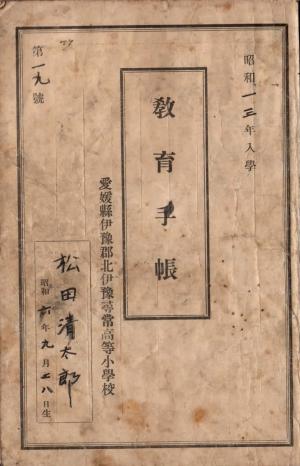 昭和一三年入學
教育手帳
愛媛縣伊豫郡北伊豫尋常高等小學校
第一九號
松田清太郎
昭和六年九月二八日生